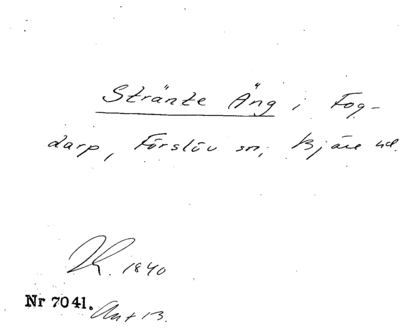 Stränte Äng i Fog-
darp, Förslöv sn, Bjäre hd.
K. 1840
Nr 7041. Ant 13.